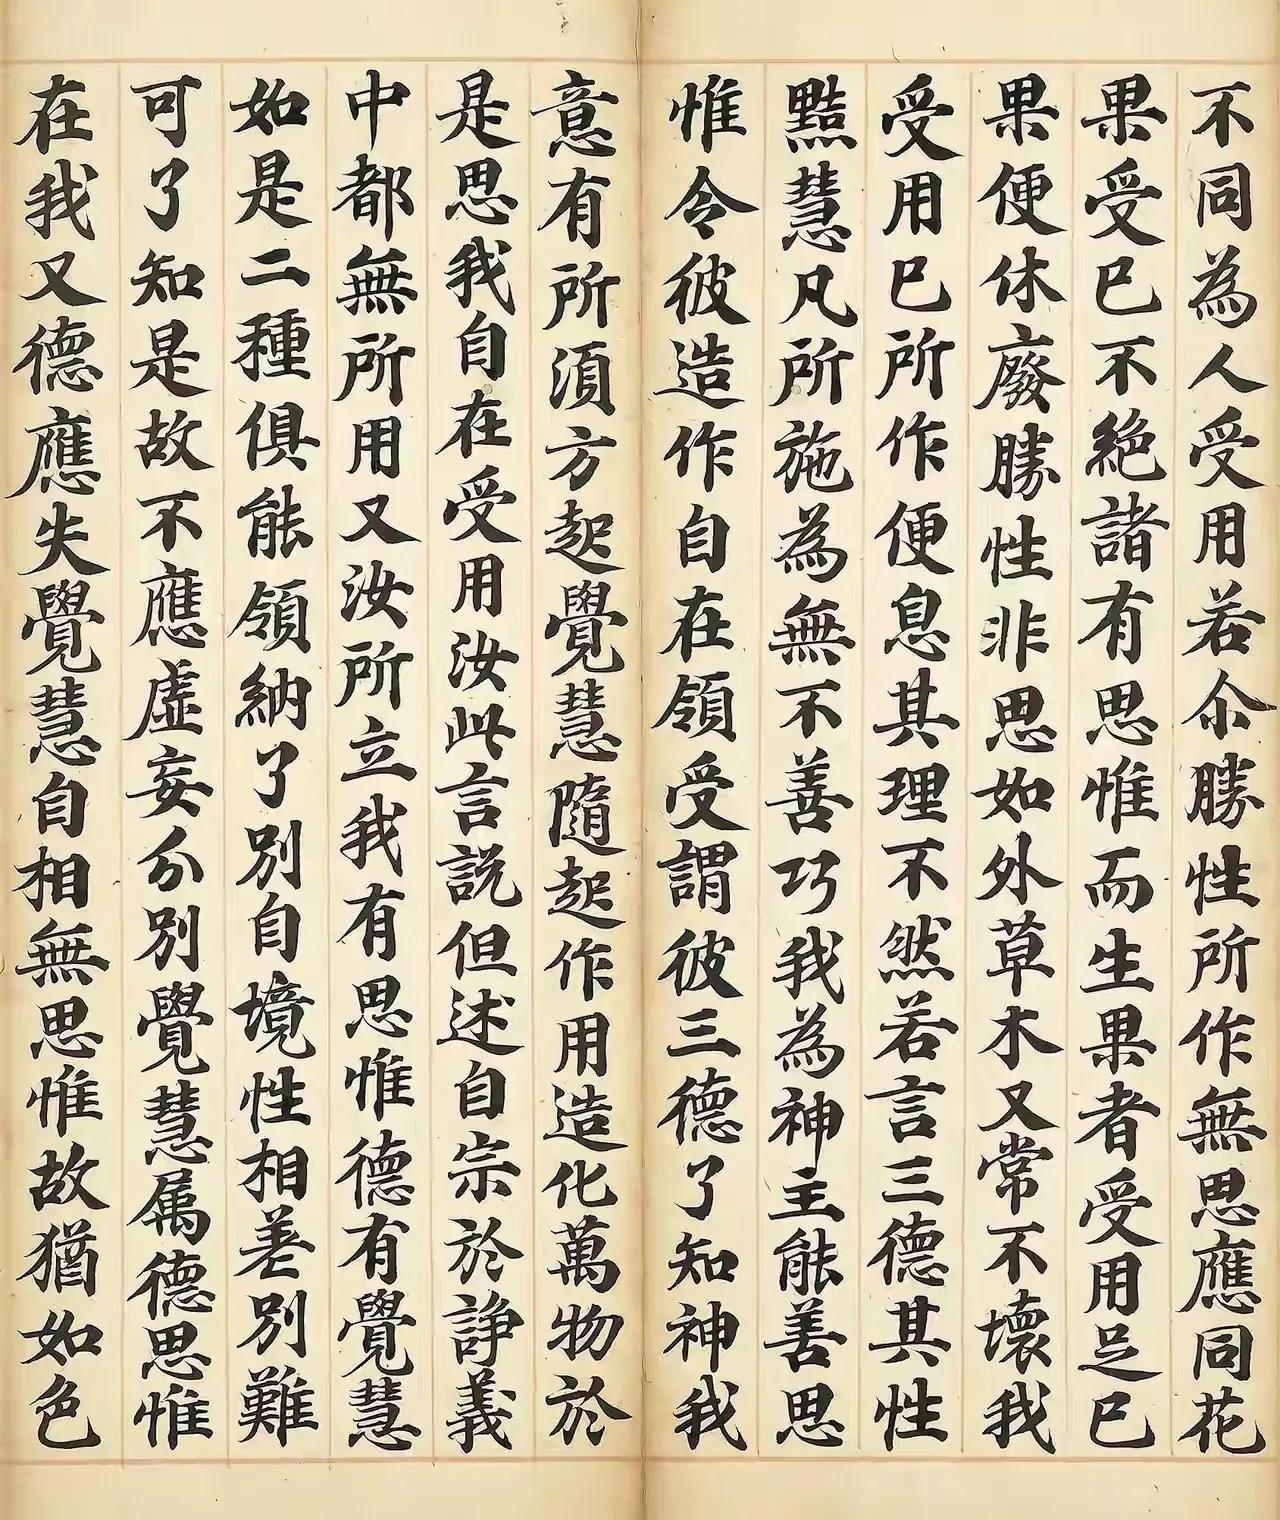 不同為人受用若尒勝性所作無思應同花
果受已不絕諸有思惟而生果者受用足已
果便休廢勝性非思如外草木又常不壞我
受用已所作便息其理不然若言三德其性
黠慧凡所施為無不善巧我為神主能善思
惟令彼造作自在領受謂彼三德了知神我
意有所須方起覺慧隨起作用造化萬物於
是思我自在受用汝此言說但述自宗於諍義
中都無所用又汝所立我有思惟德有覺慧
如是二種俱能領納了別自境性相差別難
可了知是故不應虛妄分別覺慧属德思惟
在我又德應失覺慧自相無思惟故猶如色